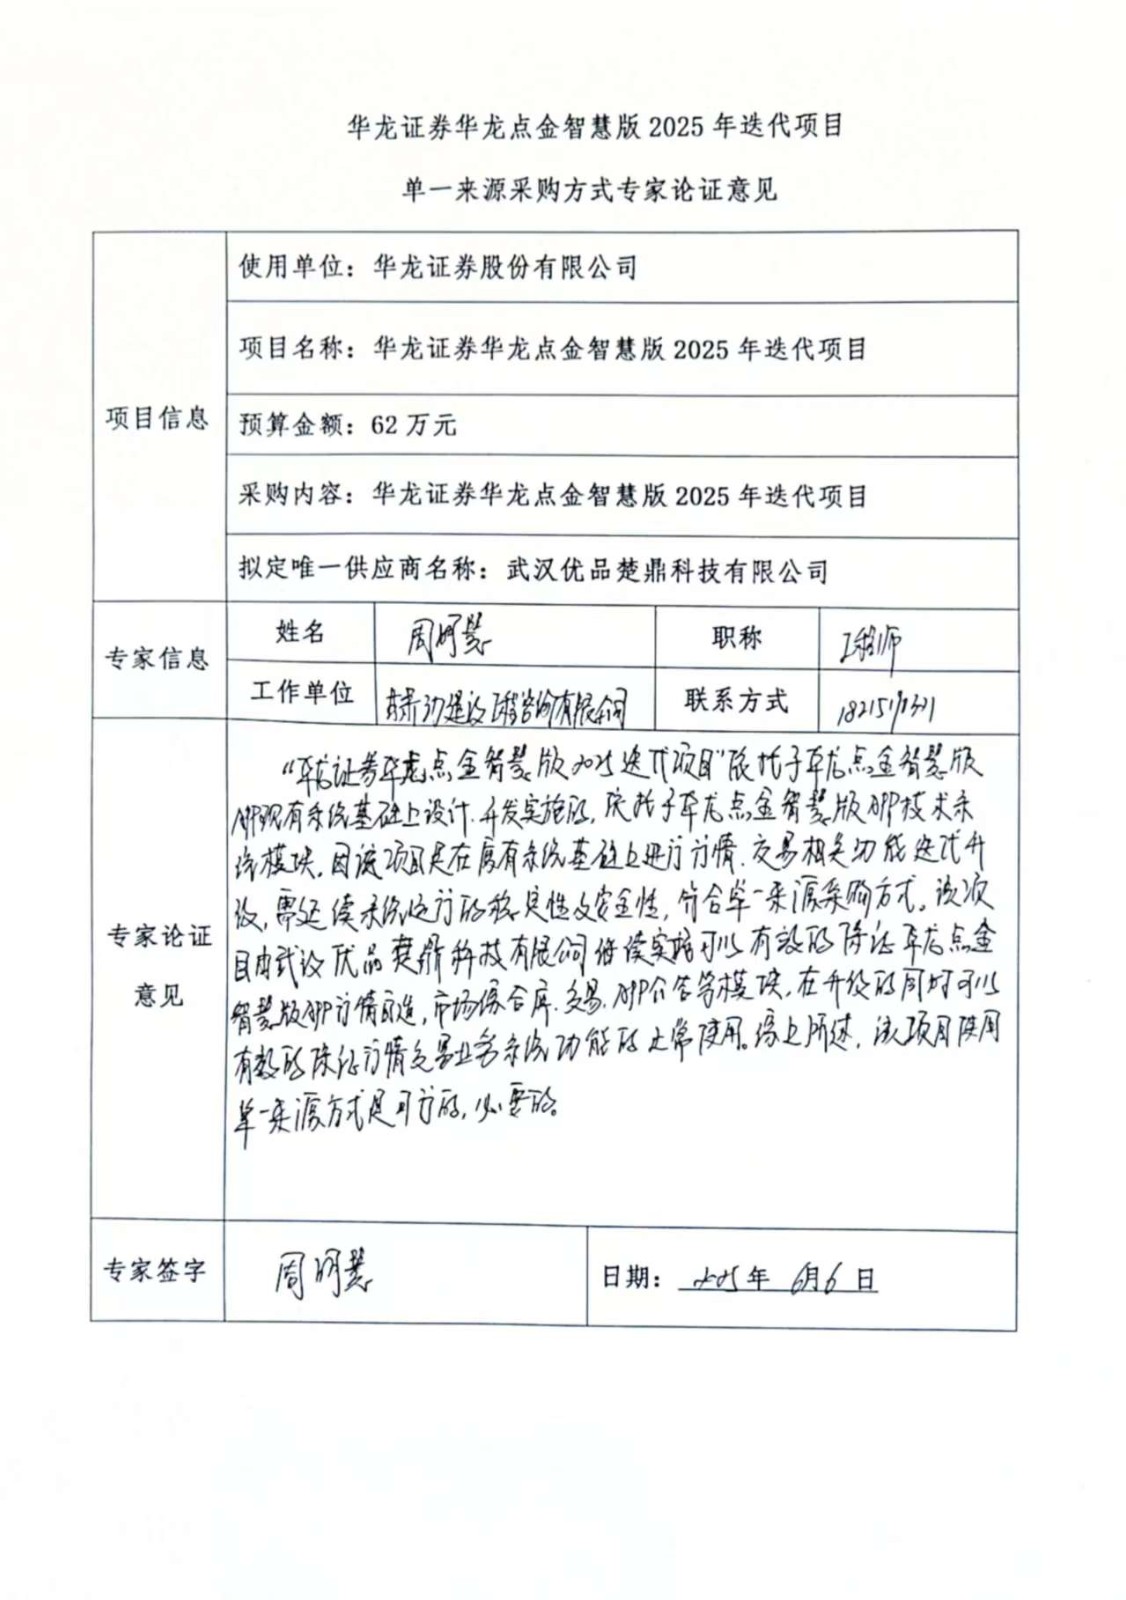 华龙证券华龙点金智慧版 2025 年迭代项目
单一来源采购方式专家论证意见
项目信息
使用单位：华龙证券股份有限公司
项目名称：华龙证券华龙点金智慧版 2025 年迭代项目
预算金额：62 万元
采购内容：华龙证券华龙点金智慧版 2025 年迭代项目
拟定唯一供应商名称：武汉优品楚鼎科技有限公司
专家信息
姓名
周明慧
职称
工程师
工作单位
建设工程咨询有限公司
联系方式
专家论证
意见
“华龙证券华龙点金智慧版2025迭代项目”依托于华龙点金智慧版
APP现有系统基础上设计、开发实施的，依托于华龙点金智慧版APP技术系
统模块，因该项目是在原有系统基础上进行行情、交易相关功能迭代升
级，需延续系统运行的稳定性及安全性，符合单一来源采购方式。该项
目由武汉优品楚鼎科技有限公司继续实施可以有效的保证华龙点金
智慧版APP行情改造，市场综合库、交易、APP公告等模块，在升级的同时可以
有效的保证行情交易业务系统功能的正常使用。综上所述，该项目使用
单一来源方式是可行的，必要的。
专家签字
周明慧
日期：2025年 6月6日